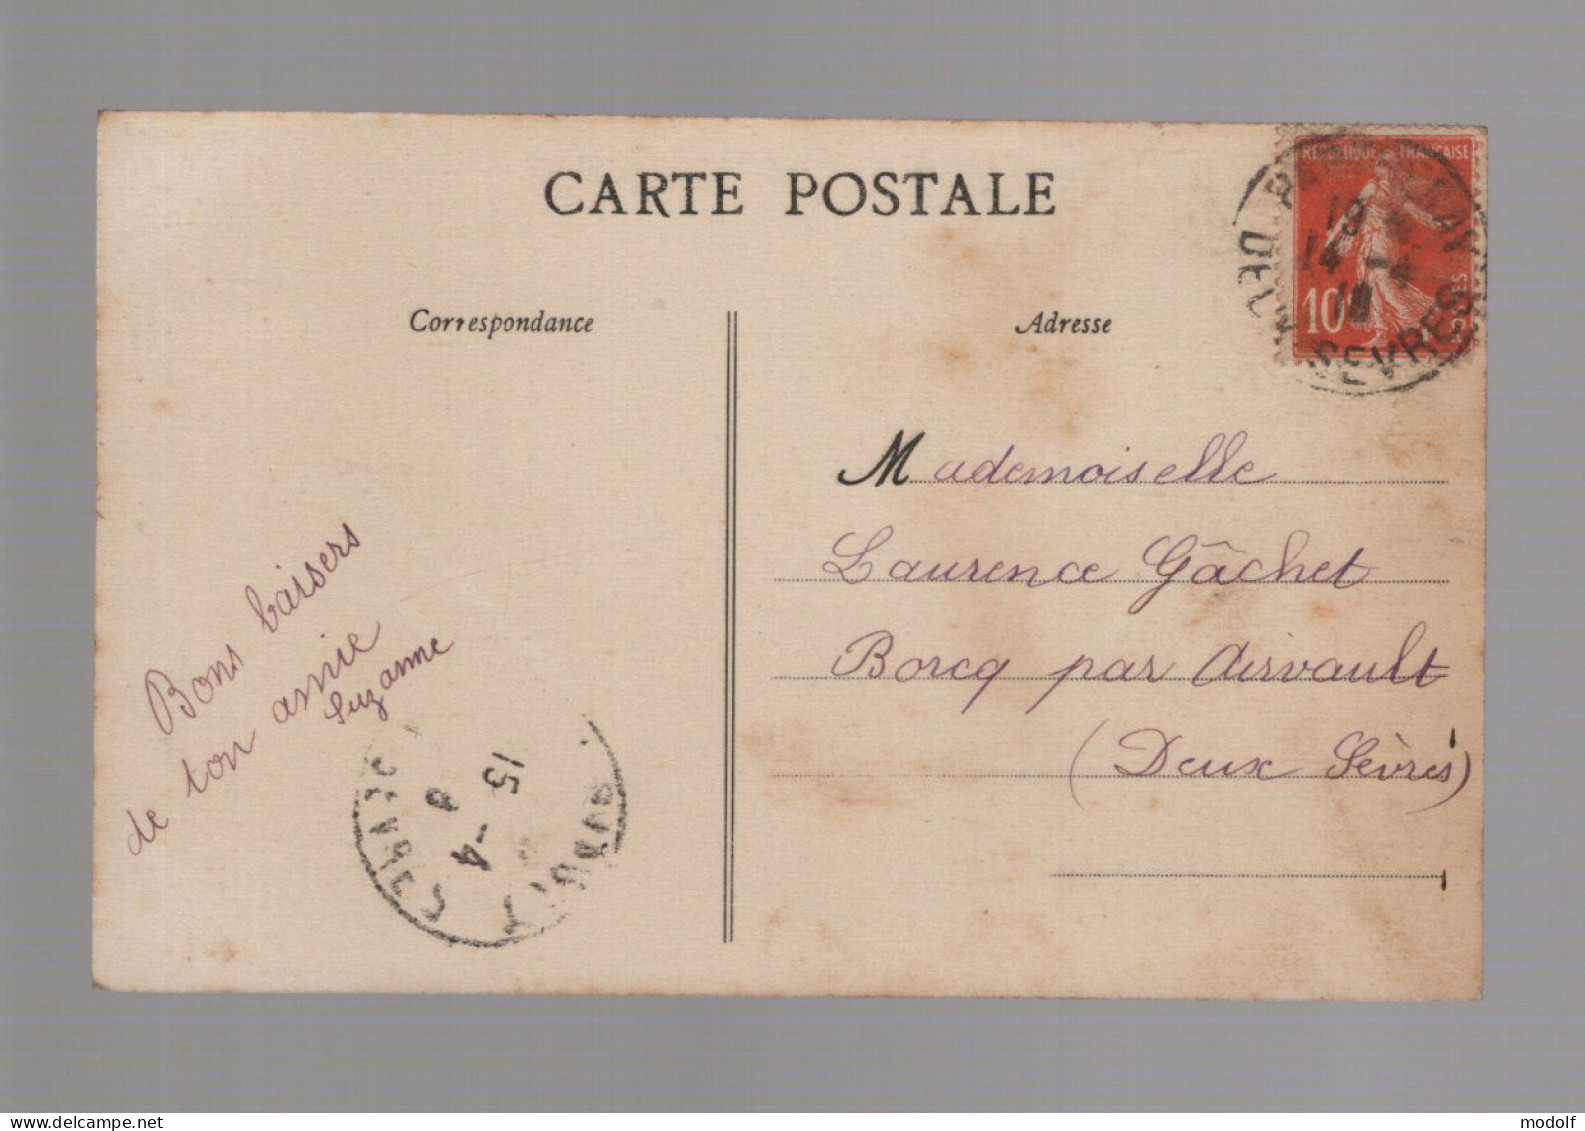 CARTE POSTALE
Correspondance
Adresse
RÉPUBLIQUE FRANÇAISE
10
PARTHENAY
19
14 -4
DEUX SEVRES
Mademoiselle
Laurence Gâchet
Borcq par Airvault
(Deux Sèvres)
Bons baisers
de ton amie
Suzanne
15 -4
SEVRES
www.delcampe.net
modolf